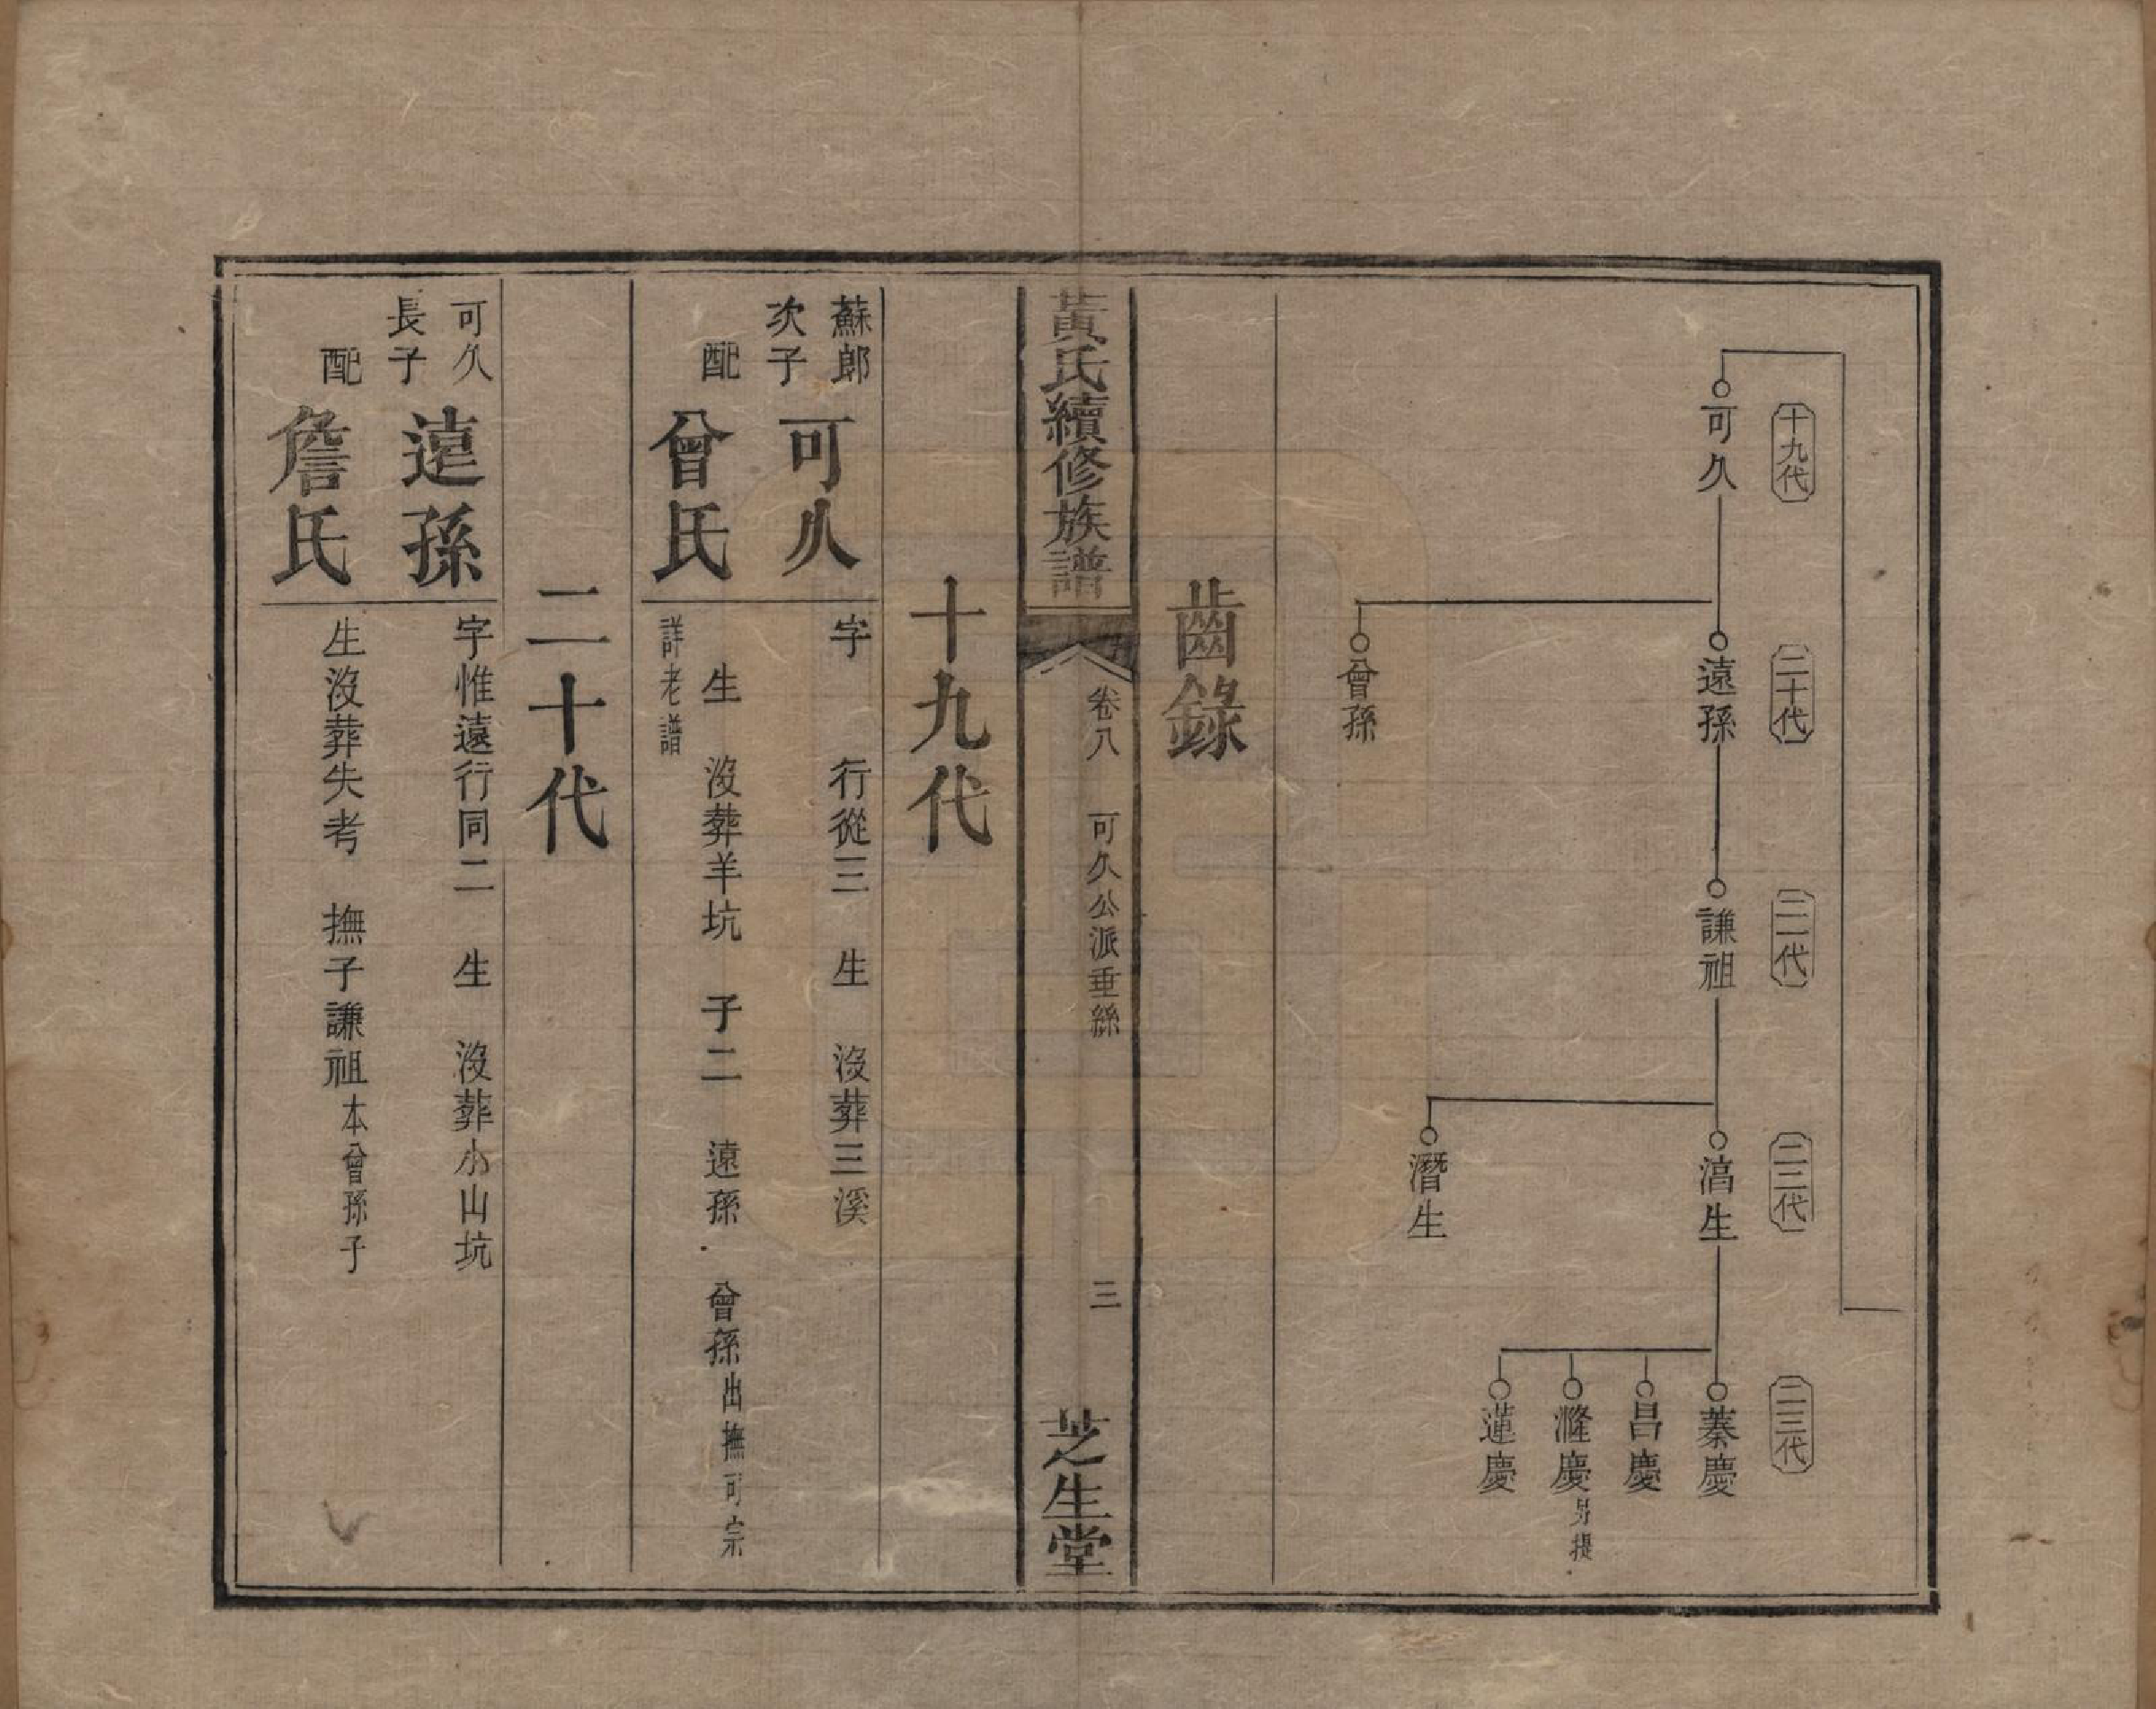 十九代
可久
二十代
遠孫
曾孫
二一代
謙祖
二二代
滈生
潛生
二三代
蓁慶
昌慶
漋慶另提
蓮慶
齒錄
黃氏續修族譜
卷八
可久公派垂絲
三
芝生堂
十九代
蘇郎
次子
可久
字 行從三 生 沒葬三溪
配
曾氏
生 沒葬羊坑 子二 遠孫 曾孫出撫可宗
詳老譜
二十代
可久
長子
遠孫
字惟遠行同二 生 沒葬小山坑
配
詹氏
生沒葬失考 撫子謙祖本曾孫子